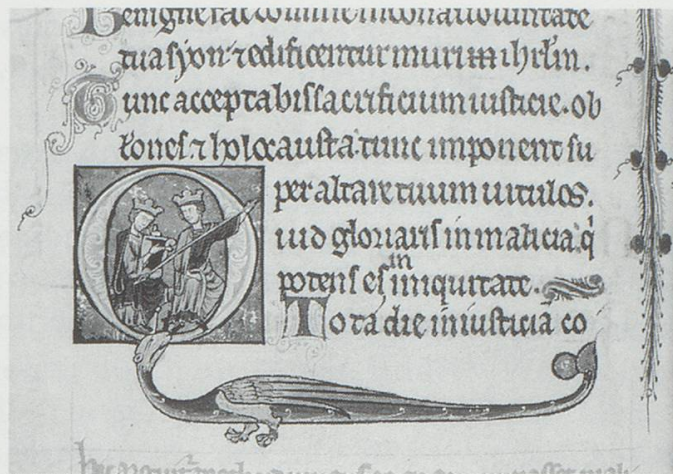 Benigne fac domine in bona uoluntate
tua syon ⁊ edificentur muri ihrl̄m.
Tunc acceptabis sacrificium iusticie. ob
lones. ⁊ holocausta. tunc imponent su
per altare tuum uitulos.
Quid gloriaris in malicia. q̇
potens es in iniquitate.
Tota die iniusticiā co